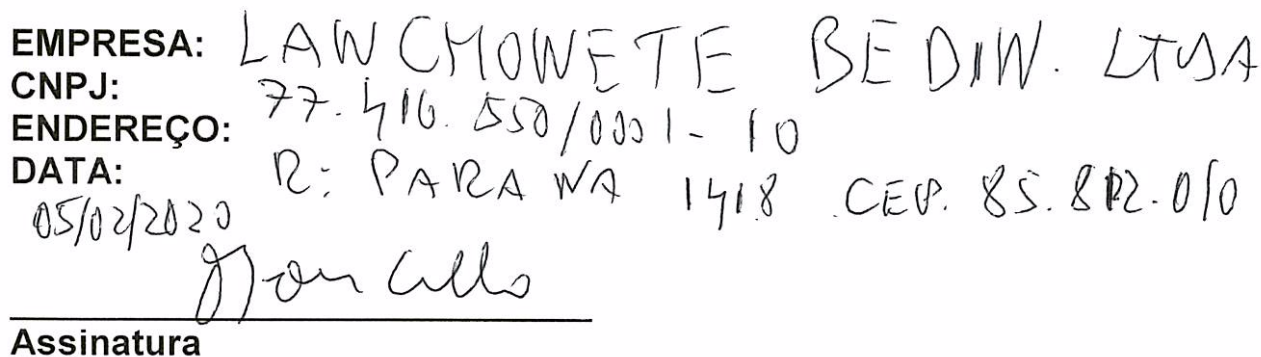 EMPRESA: LANCHONETE BEDIN. LTDA
CNPJ: 77.416.550/0001-10
ENDEREÇO: R: PARANA 1418 CEP. 85.812.010
DATA: 05/02/2020
Assinatura